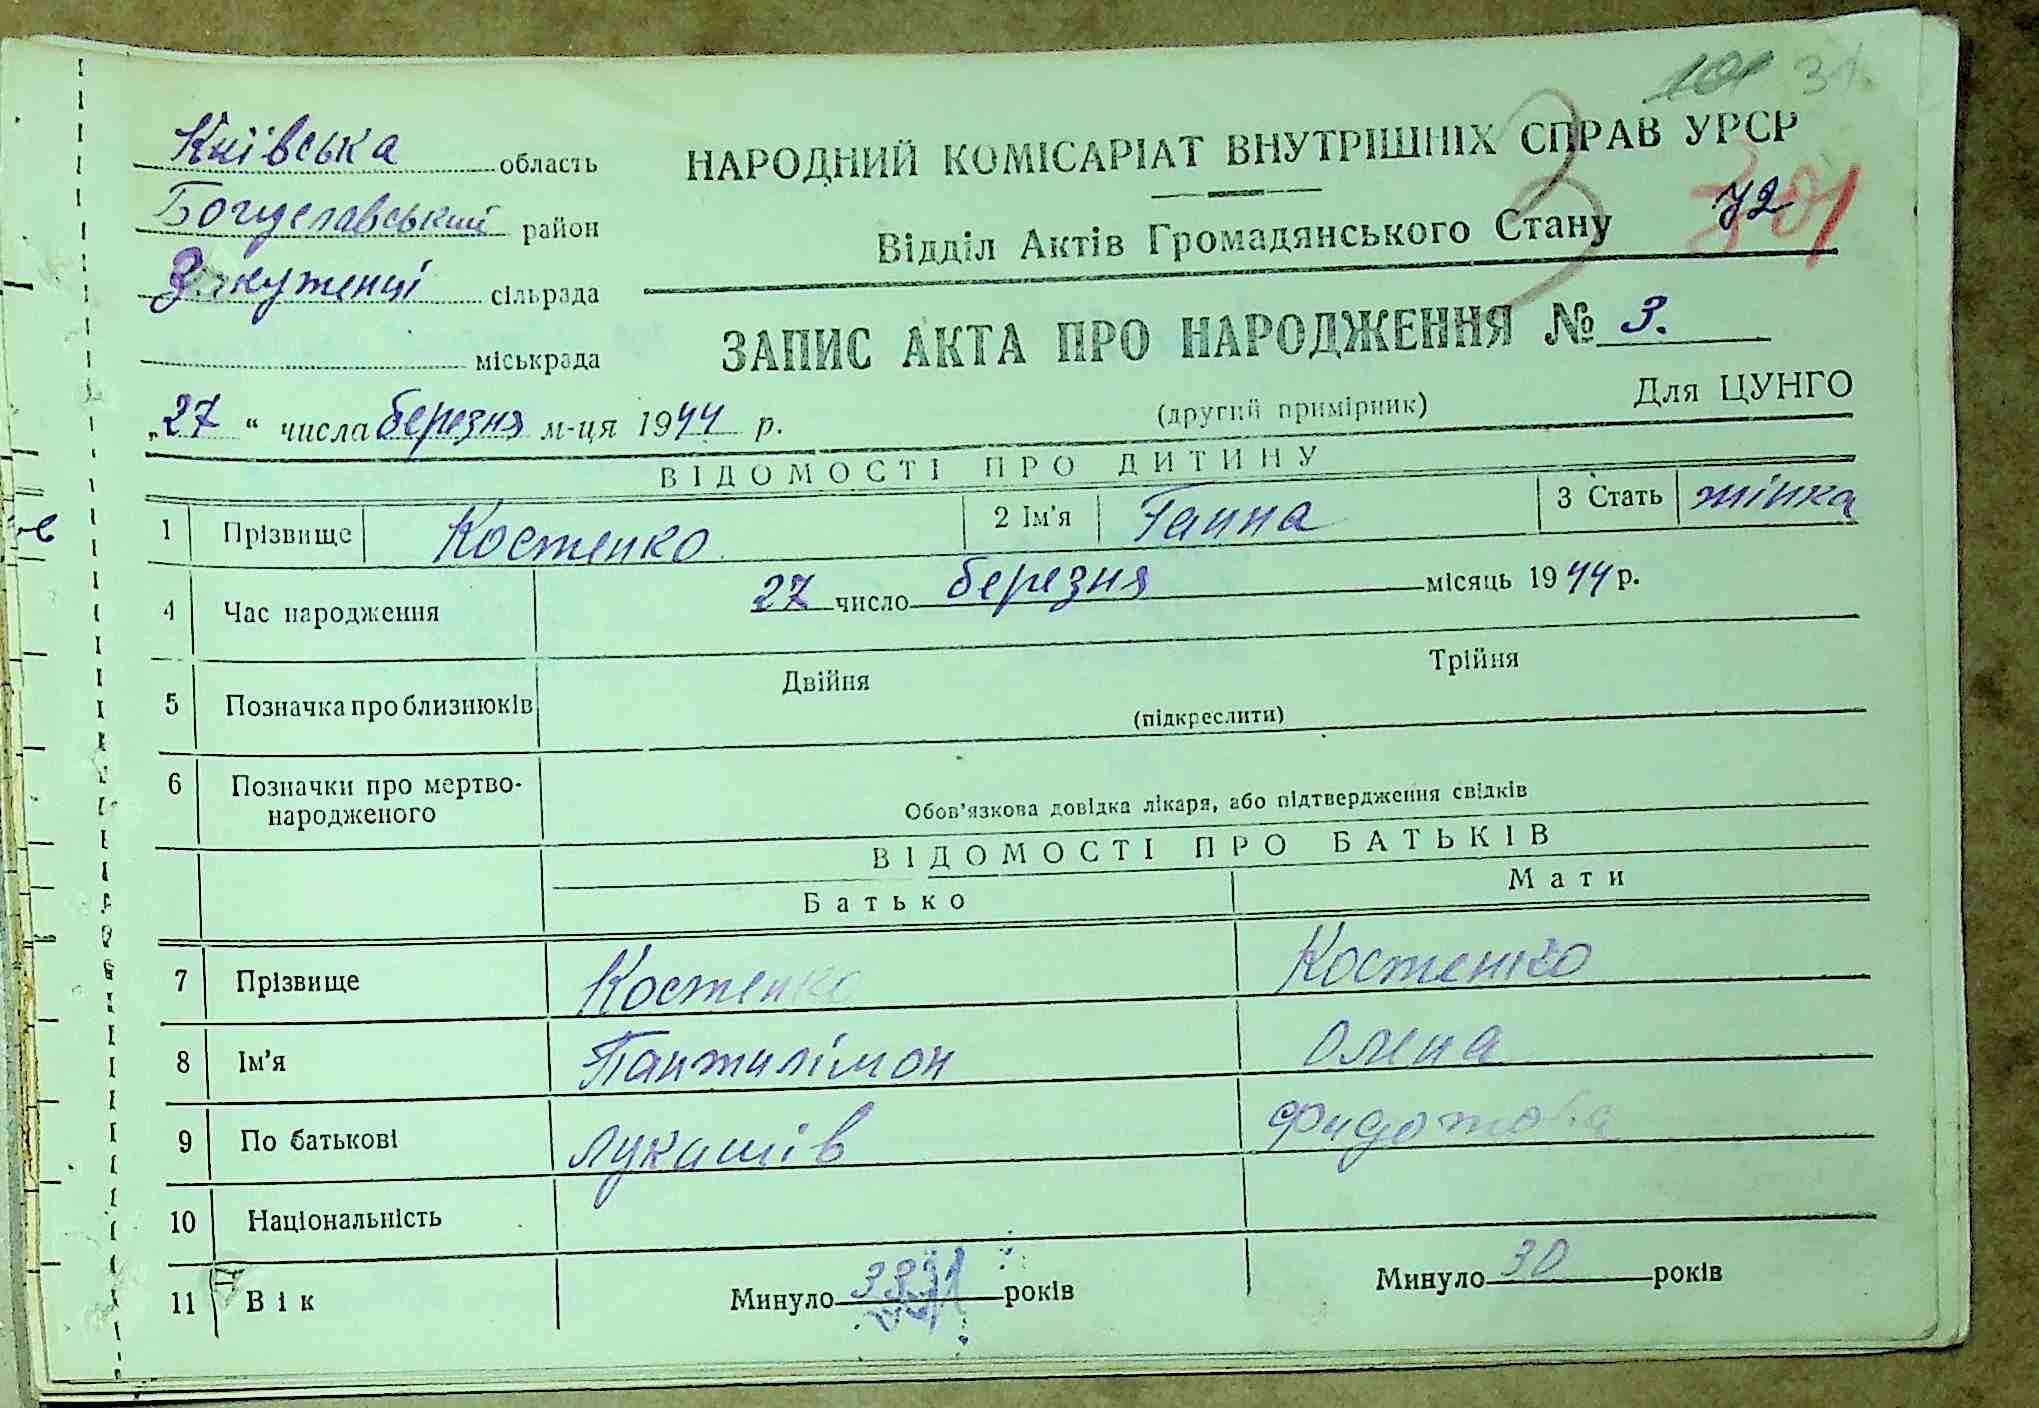 31.
Київська область
НАРОДНИЙ КОМІСАРІАТ ВНУТРІШНІХ СПРАВ УРСР
Богуславський район
Відділ Актів Громадянського Стану 72
сільрада
ЗАПИС АКТА ПРО НАРОДЖЕННЯ № 3.
міськрада
Для ЦУНГО
„27“ числа березня м-ця 1944 р.
(другий примірник)
ВІДОМОСТІ ПРО ДИТИНУ
1 Прізвище Костенко 2 Ім'я Ганна 3 Стать жінка
4 Час народження 27 число березня місяць 1944 р.
5 Позначка про близнюків Двійня Трійня
(підкреслити)
6 Позначки про мертво-
народженого
Обов'язкова довідка лікаря, або підтвердження свідків
ВІДОМОСТІ ПРО БАТЬКІВ
Батько Мати
7 Прізвище Костенко Костенко
8 Ім'я Пантилімон Олена
9 По батькові Лукашів Фидотова
10 Національність
11 Вік Минуло років Минуло 30 років